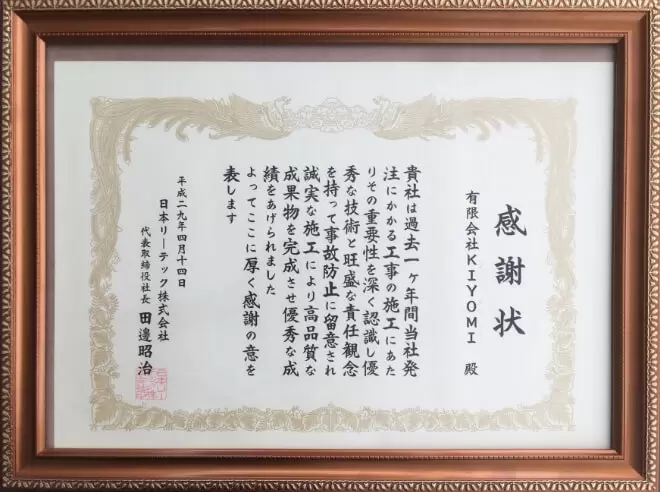 感謝状
有限会社KIYOMI 殿
貴社は過去一ヶ年間当社発
注にかかる工事の施工にあた
りその重要性を深く認識し優
秀な技術と旺盛な責任観念
を持って事故防止に留意され
誠実な施工により高品質な
成果物を完成させ優秀な成
績をあげられました
よってここに厚く感謝の意を
表します
平成二九年四月十四日
日本リーテック株式会社
代表取締役社長 田邊昭治